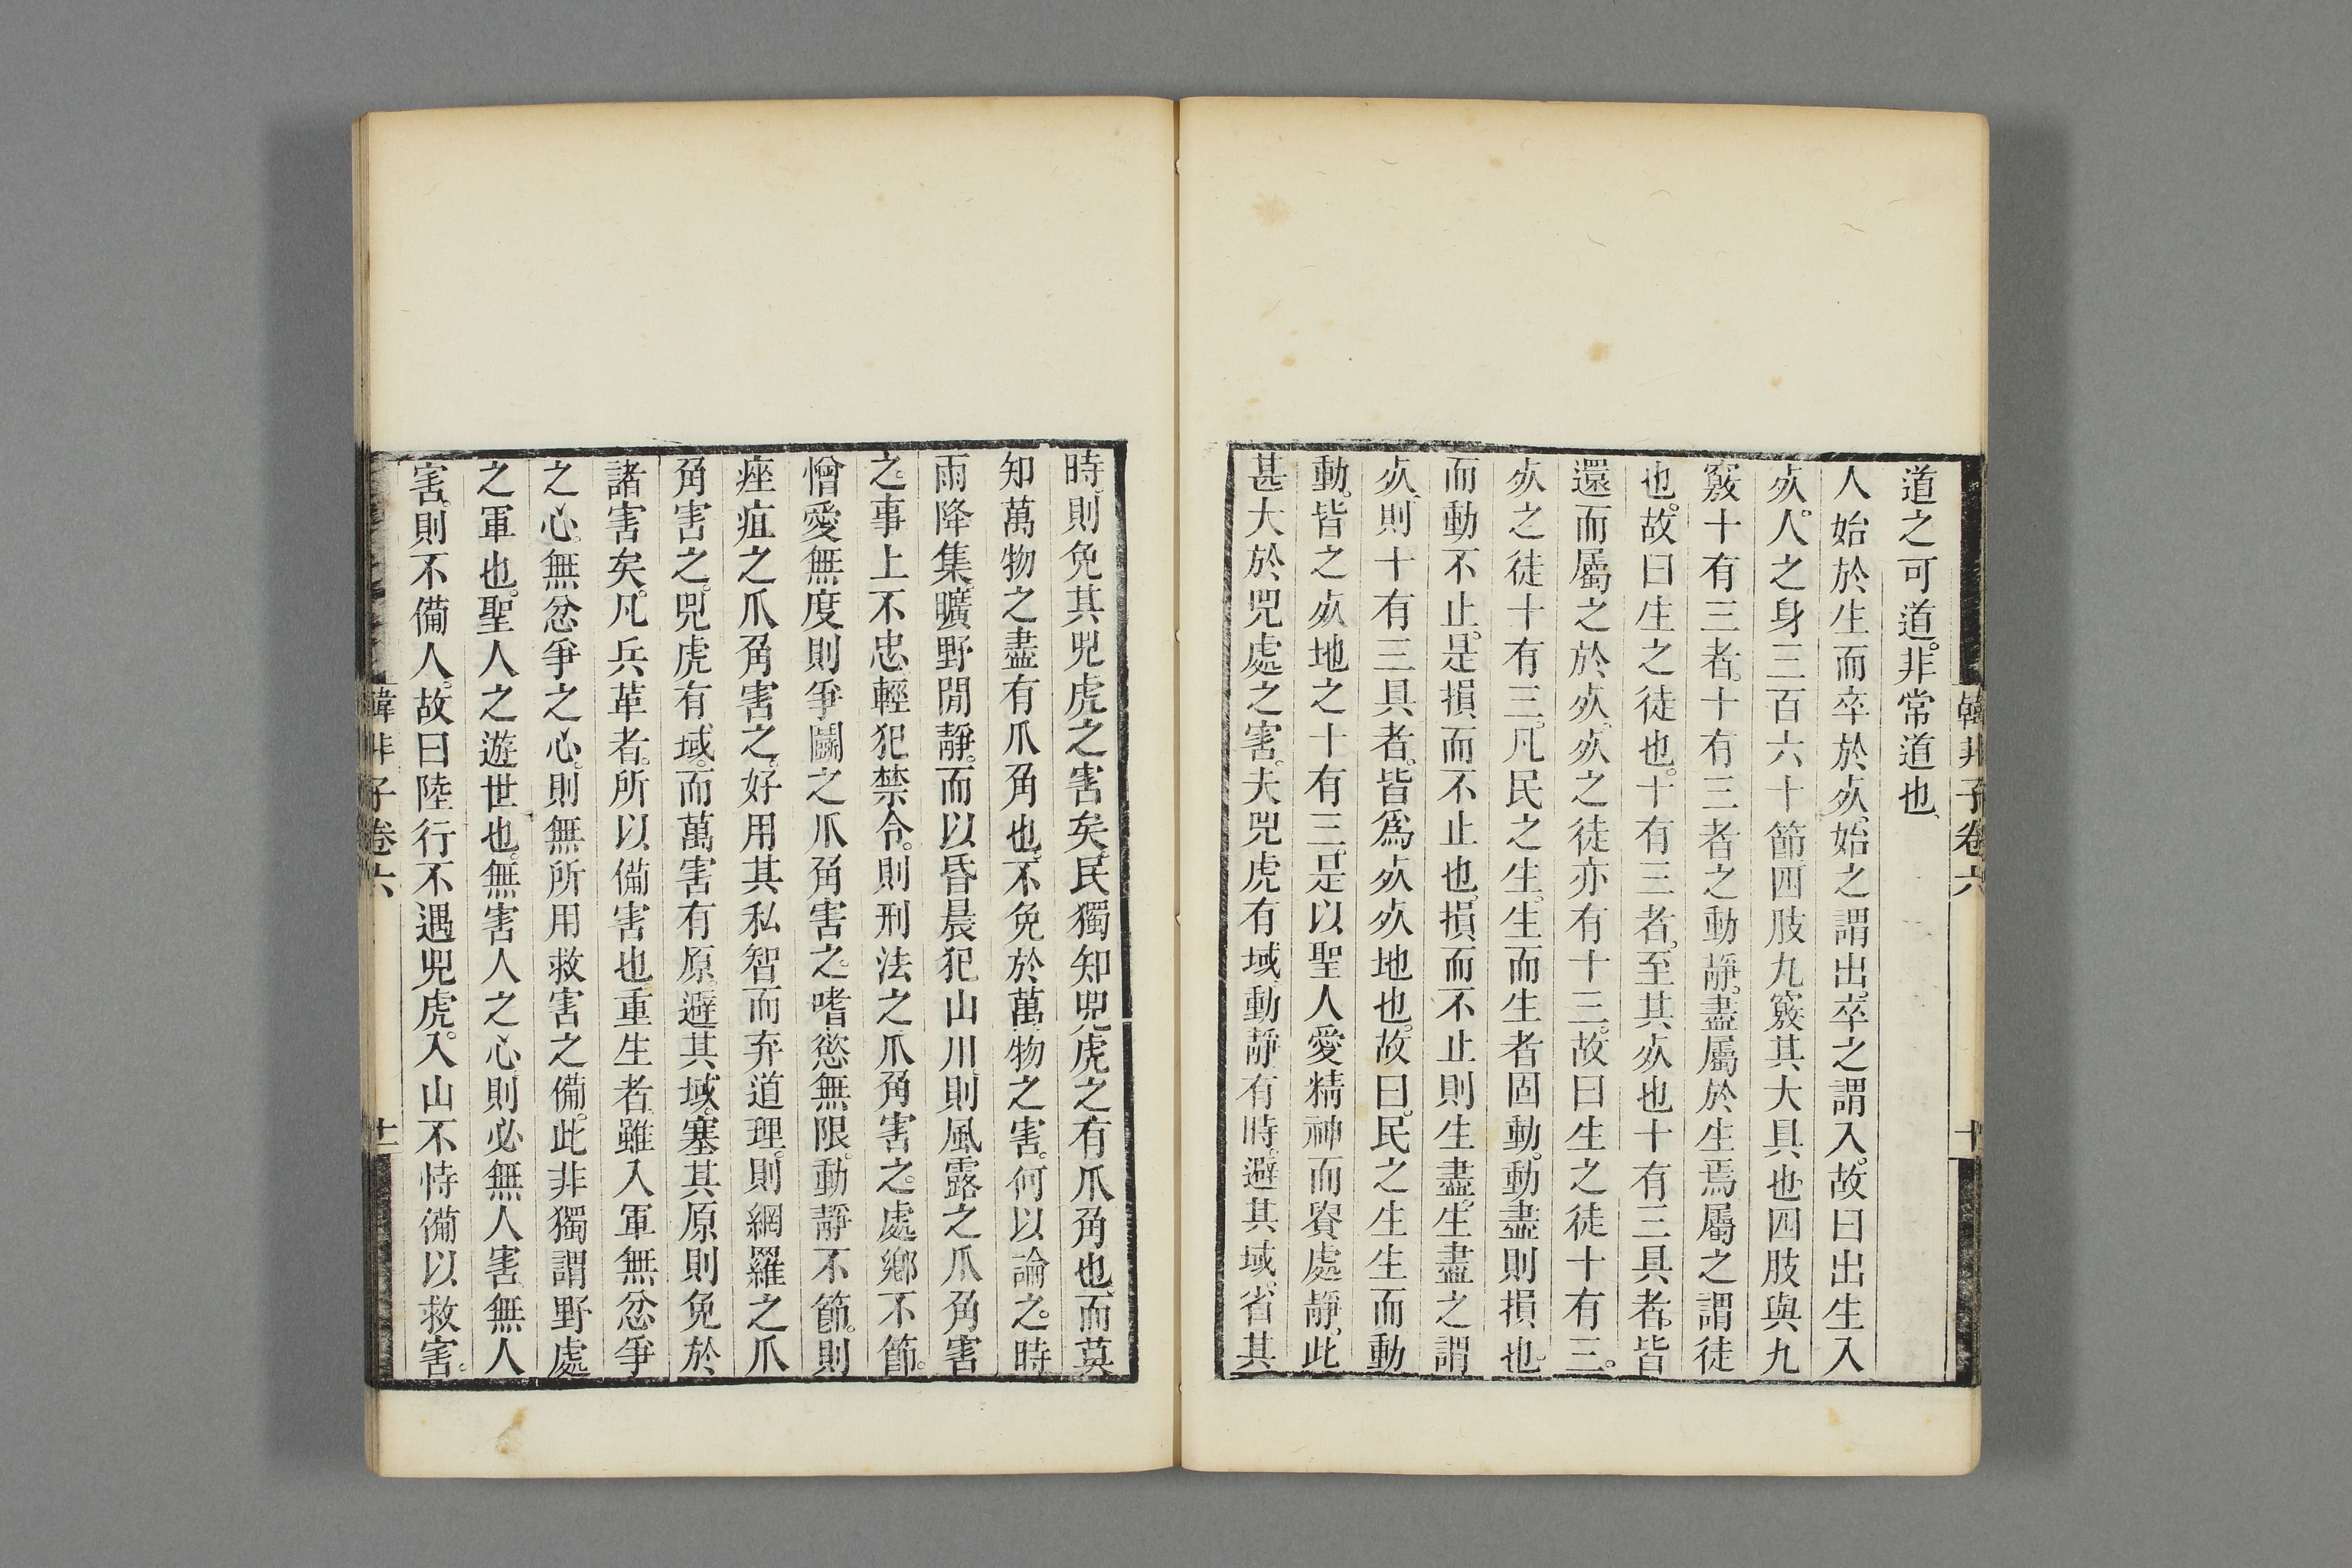 韓非子卷六
十
道之可道。非常道也、
人始於生而卒於死。始之謂出。卒之謂入。故曰出生入
死。人之身三百六十節四肢九竅其大具也四肢與九
竅十有三者。十有三者之動靜。盡屬於生焉屬之謂徒
也。故曰生之徒也。十有三者。至其死也十有三具者。皆
還而屬之於死。死之徒亦有十三。故曰生之徒十有三。
死之徒十有三。凡民之生。生而生者固動。動盡則損也。
而動不止。是損而不止也。損而不止則生盡。生盡之謂
死。則十有三具者。皆爲死死地也。故曰。民之生生而動
動。皆之死地之十有三。是以聖人愛精神而貴處靜。此
甚大於兕處之害。夫兕虎有域。動靜有時。避其域。省其
時。則免其兕虎之害矣。民獨知兕虎之有爪角也。而莫
知萬物之盡有爪角也。不免於萬物之害。何以論之。時
雨降集。曠野閒靜。而以昏晨犯山川。則風露之爪角害
之。事上不忠。輕犯禁令。則刑法之爪角害之。處鄉不節。
憎愛無度則爭鬭之爪角害之。嗜慾無限。動靜不節。則
痤疽之爪角害之。好用其私智而弃道理。則網羅之爪
角害之。兕虎有域。而萬害有原。避其域。塞其原則免於
諸害矣。凡兵革者。所以備害也。重生者。雖入軍無忿爭
之心。無忿爭之心。則無所用救害之備。此非獨謂野處
之軍也。聖人之遊世也。無害人之心。則必無人害無人
害。則不備人。故曰陸行不遇兕虎。入山不恃備以救害。
韓非子卷六
十一